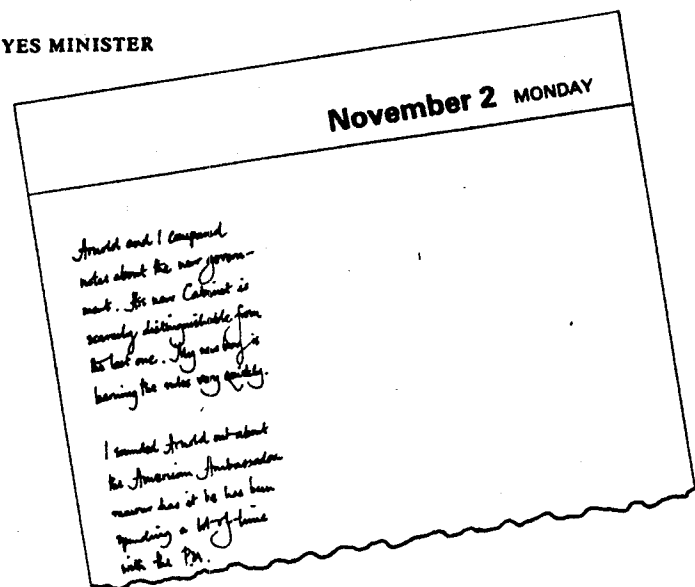 YES MINISTER
November 2 MONDAY
Arnold and I compared
notes about the new govern-
ment. His new Cabinet is
scarcely distinguishable from
the last one. My new boy is
learning the rules very quickly.
I sounded Arnold out about
the American Ambassador
rumour has it he has been
spending a lot of time
with the PM.